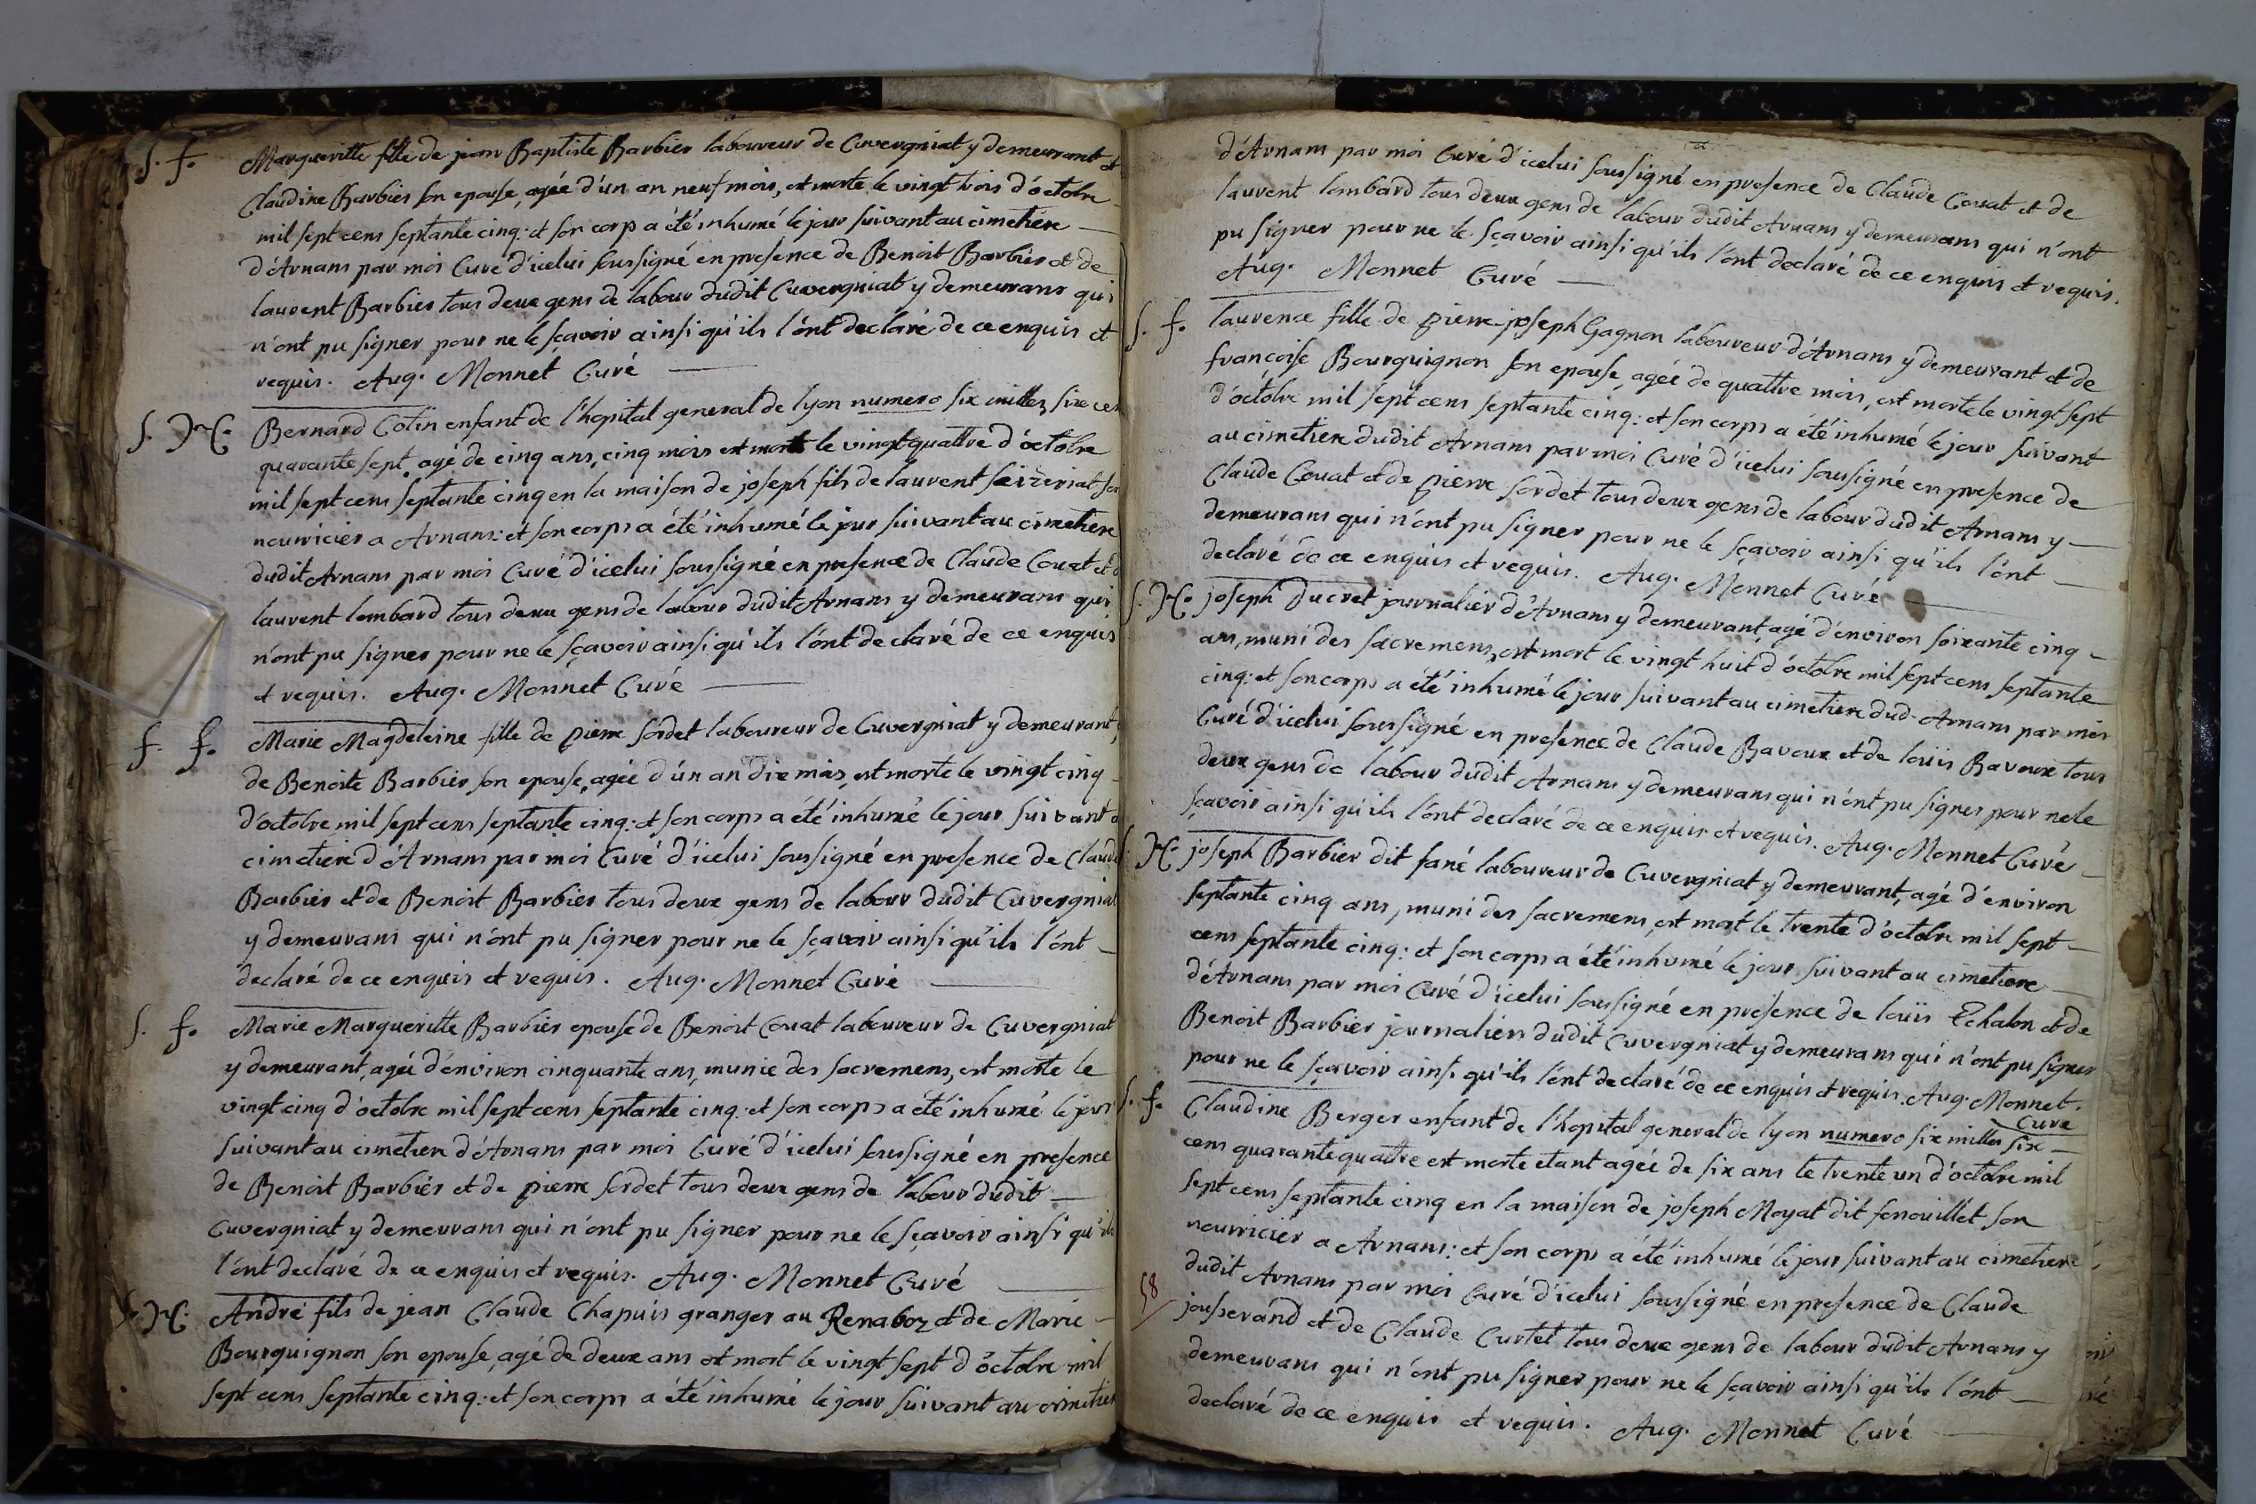 S. f. Margueritte fille de jean Baptiste Barbier laboureur de Cuvergniat y demeurant et
Claudine Barbier son epouse, agée d'un an neuf mois, est morte le vingt trois d'octobre
mil sept cens septante cinq: et son corps a été inhumé le jour suivant au cimetiere
d'Arnans par moi Curé d'icelui soussigné en presence de Benoit Barbier et de
laurent Barbier tous deux gens de labour dudit Cuvergniat y demeurans qui
n'ont pu signer pour ne le sçavoir ainsi qu'ils l'ont declaré de ce enquis et
requis. Aug. Monnet Curé
S. M. Bernard Colin enfant de l'hopital general de lyon numero six milles six cens
quarante sept, agé de cinq ans, cinq mois est mort le vingt quattre d'octobre
mil sept cens septante cinq en la maison de joseph fils de laurent son
nourricier a Arnans: et son corps a été inhumé le jour suivant au cimetiere
dudit Arnans par moi Curé d'icelui soussigné en presence de Claude Couat et de
laurent lombard tous deux gens de labour dudit Arnans y demeurans qui
n'ont pu signer pour ne le sçavoir ainsi qu'ils l'ont declaré de ce enquis
et requis. Aug. Monnet Curé
S. f. Marie Magdeleine fille de pierre sordet laboureur de Cuvergniat y demeurant,
de Benoite Barbier son epouse, agée d'un an dix mois, est morte le vingt cinq
d'octobre mil sept cens septante cinq: et son corps a été inhumé le jour suivant au
cimetiere d'Arnans par moi Curé d'icelui soussigné en presence de Claude
Barbier et de Benoit Barbier tous deux gens de labour dudit Cuvergniat
y demeurans qui n'ont pu signer pour ne le sçavoir ainsi qu'ils l'ont
declaré de ce enquis et requis. Aug. Monnet Curé
S. f. Marie Margueritte Barbier epouse de Benoit Couat laboureur de Cuvergniat
y demeurant, agée d'environ cinquante ans, munie des sacremens, est morte le
vingt cinq d'octobre mil sept cens septante cinq: et son corps a été inhumé le jour
suivant au cimetiere d'Arnans par moi Curé d'icelui soussigné en presence
de Benoit Barbier et de pierre sordet tous deux gens de labour dudit
Cuvergniat y demeurans qui n'ont pu signer pour ne le sçavoir ainsi qu'ils
l'ont declaré de ce enquis et requis. Aug. Monnet Curé
S. M. André fils de jean Claude Chapuis granger au Renaboz et de Marie
Bourguignon son epouse, agé de deux ans est mort le vingt sept d'octobre mil
sept cens septante cinq: et son corps a été inhumé le jour suivant au cimetiere
d'Arnans par moi Curé d'icelui soussigné en presence de Claude Couat et de
laurent lombard tous deux gens de labour dudit Arnans y demeurans qui n'ont
pu signer pour ne le sçavoir ainsi qu'ils l'ont declaré de ce enquis et requis.
Aug. Monnet Curé
S. f. laurence fille de pierre-joseph Gagnon laboureur d'Arnans y demeurant et de
francoise Bourguignon son epouse, agée de quattre mois, est morte le vingt sept
d'octobre mil sept cens septante cinq: et son corps a été inhumé le jour suivant
au cimetiere dudit Arnans par moi Curé d'icelui soussigné en presence de
Claude Couat et de pierre sordet tous deux gens de labour dudit Arnans y
demeurans qui n'ont pu signer pour ne le sçavoir ainsi qu'ils l'ont
declaré de ce enquis et requis. Aug. Monnet Curé
S. M. joseph Ducret journalier d'Arnans y demeurant, agé d'environ soixante cinq
ans, muni des sacremens, est mort le vingt huit d'octobre mil sept cens septante
cinq: et son corps a été inhumé le jour suivant au cimetiere dud. Arnans par moi
Curé d'icelui soussigné en presence de Claude Bavoux et de loüis Bavoux tous
deux gens de labour dudit Arnans y demeurans qui n'ont pu signer pour ne le
sçavoir ainsi qu'ils l'ont declaré de ce enquis et requis. Aug. Monnet Curé
S. M. joseph Barbier dit fané laboureur de Cuvergniat y demeurant, agé d'environ
septante cinq ans, muni des sacremens, est mort le trente d'octobre mil sept
cens septante cinq: et son corps a été inhumé le jour suivant au cimetiere
d'Arnans par moi Curé d'icelui soussigné en presence de loüis Echalon et de
Benoit Barbier journaliers dudit Cuvergniat y demeurans qui n'ont pu signer
pour ne le sçavoir ainsi qu'ils l'ont declaré de ce enquis et requis. Aug. Monnet.
Curé
S. f. Claudine Berger enfant de l'hopital general de lyon numero six milles six
cens quarante quattre est morte etant agée de six ans le trente un d'octobre mil
sept cens septante cinq en la maison de joseph Moyat dit fenouillet son
nourricier a Arnans: et son corps a été inhumé le jour suivant au cimetiere
dudit Arnans par moi Curé d'icelui soussigné en presence de Claude
58
jousserand et de Claude Curtet tous deux gens de labour dudit Arnans y
demeurans qui n'ont pu signer pour ne le sçavoir ainsi qu'ils l'ont
declaré de ce enquis et requis. Aug. Monnet Curé